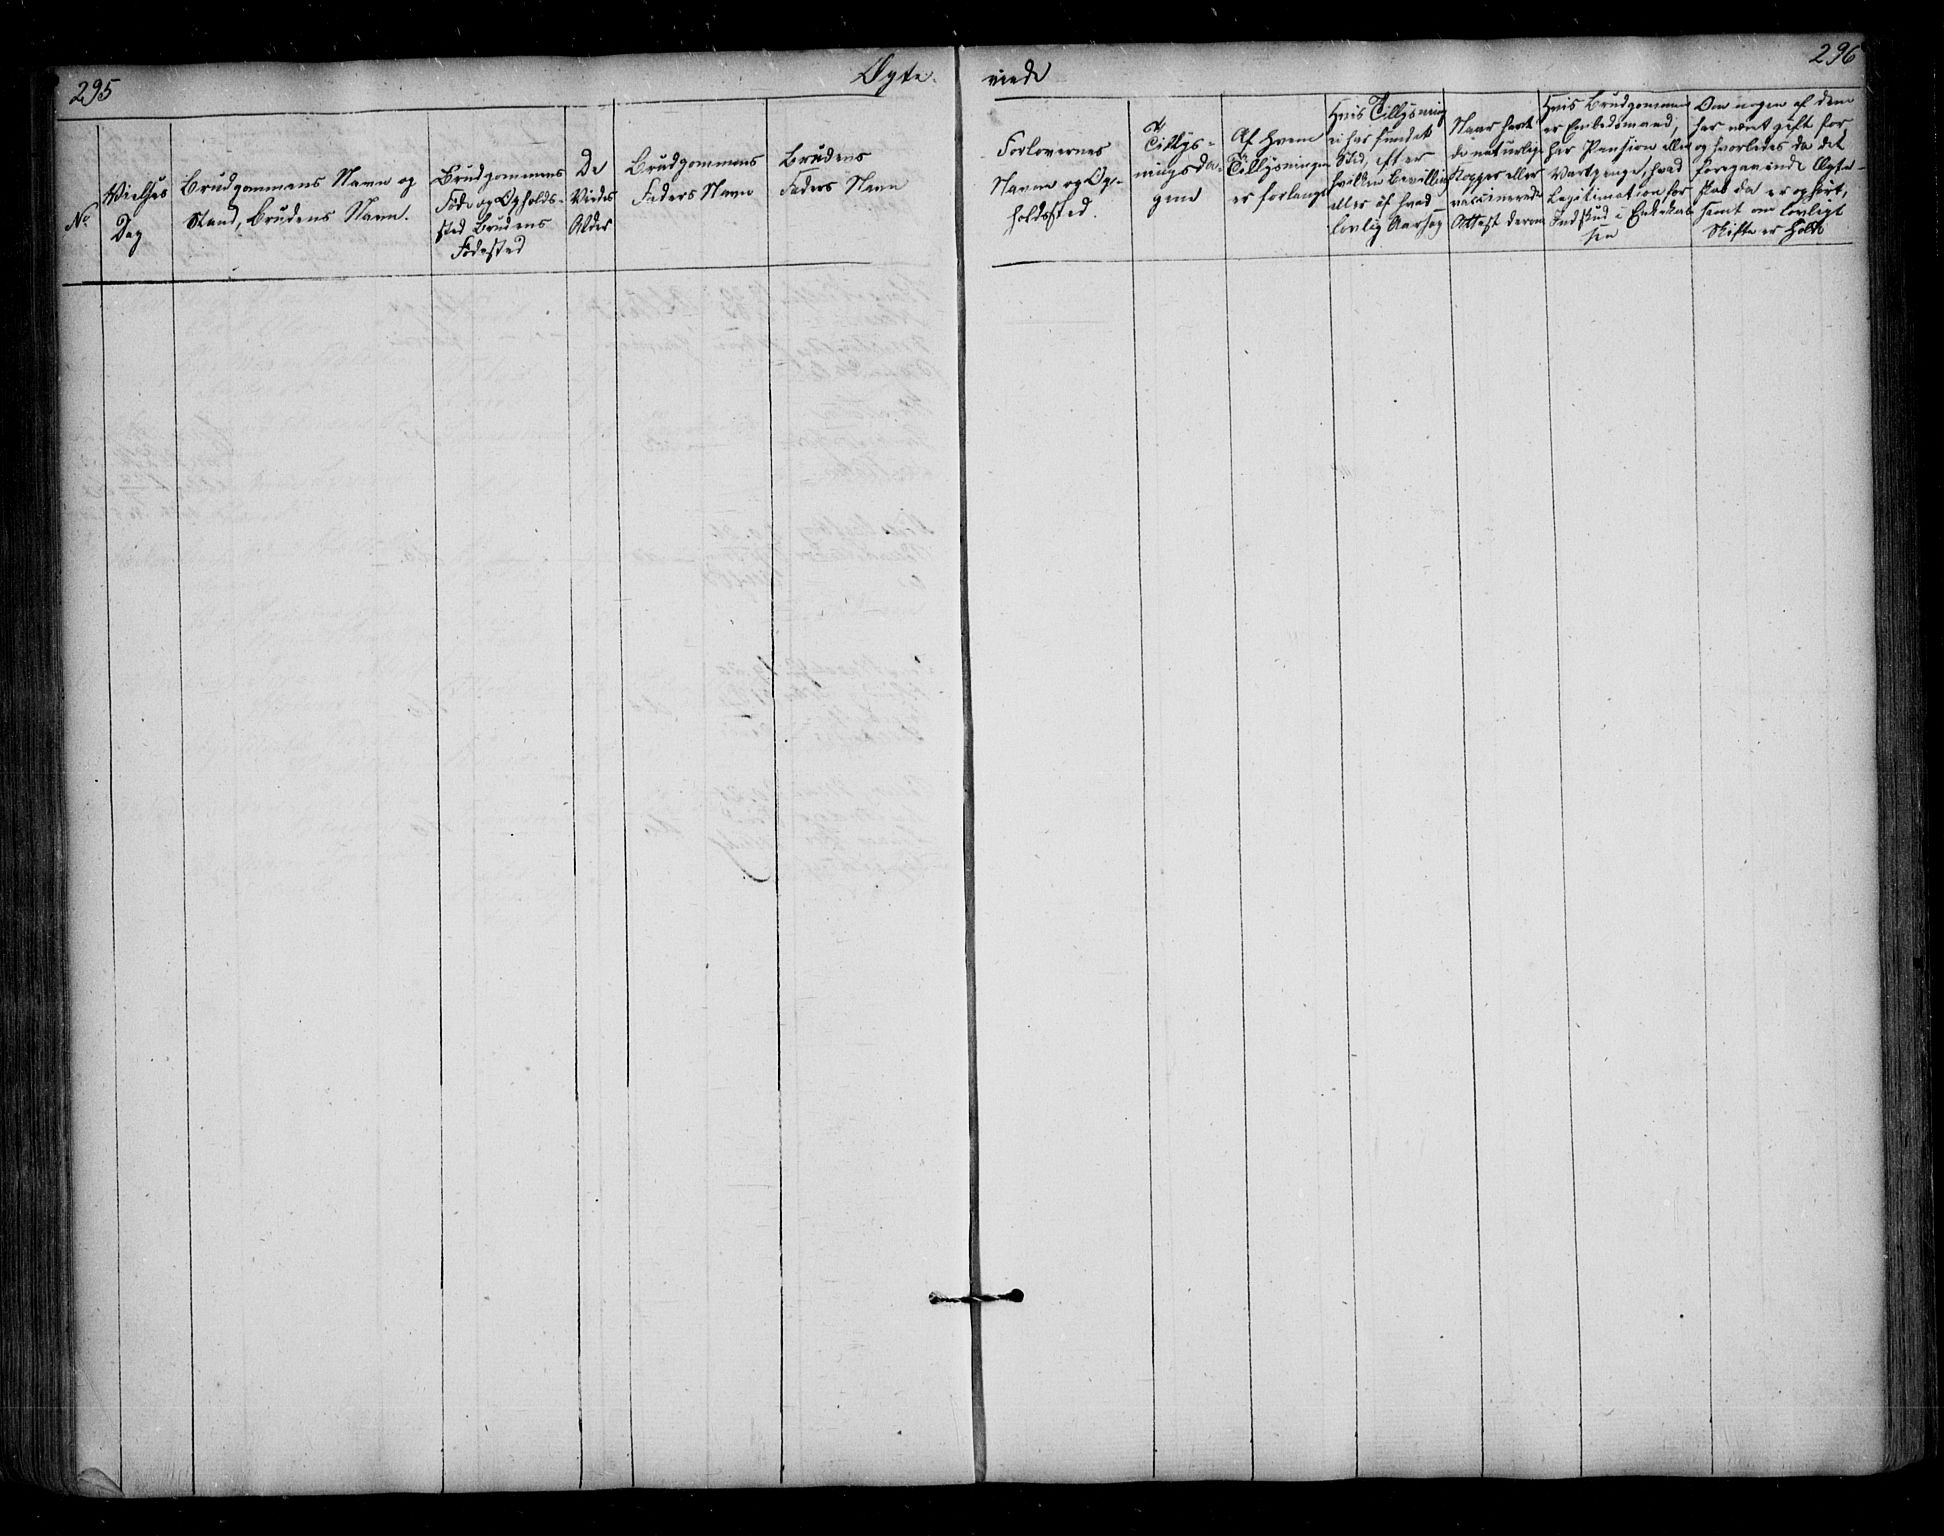 295
Ægte-
viede
296
No
Vielses
Dag
Brudgommens Navn og
Stand, Brudens Navn.
Brudgommens
Føde og Opholds-
sted Brudens
Fødested
De
Viedes
Alder
Brudgommens
Faders Navn
Brudens
Faders Navn
Forlovernes
Navne og Op-
holdssted.
Tillys-
ningsda-
gene
Af Hvem
Tillysningen
er forlangt
Hvis Tillysning
ei har fundet
Sted, efter
hvilken Bevilling
eller af hvad
lovlig Aarsag
Naar havt
de naturlige
Kopper eller
vaccinerede
Attest derom
Hvis Brudgommen
er Embedsmand,
har Pension eller
Vartpenge, hvad
Legitimation for
Indskud i Enkekas-
sen
Om nogen af dem
har været gift før,
og hvorledes da det
foregaaende Ægte-
skab da er ophørt,
samt om lovligt
Skifte er holdt